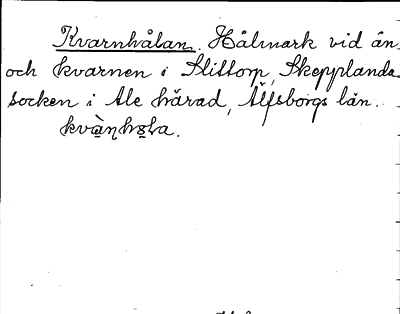 Kvarnhålan. Hålmark vid ån
och kvarnen i Slittorp, Skepplanda
socken i Ale härad, Älfsborgs län.